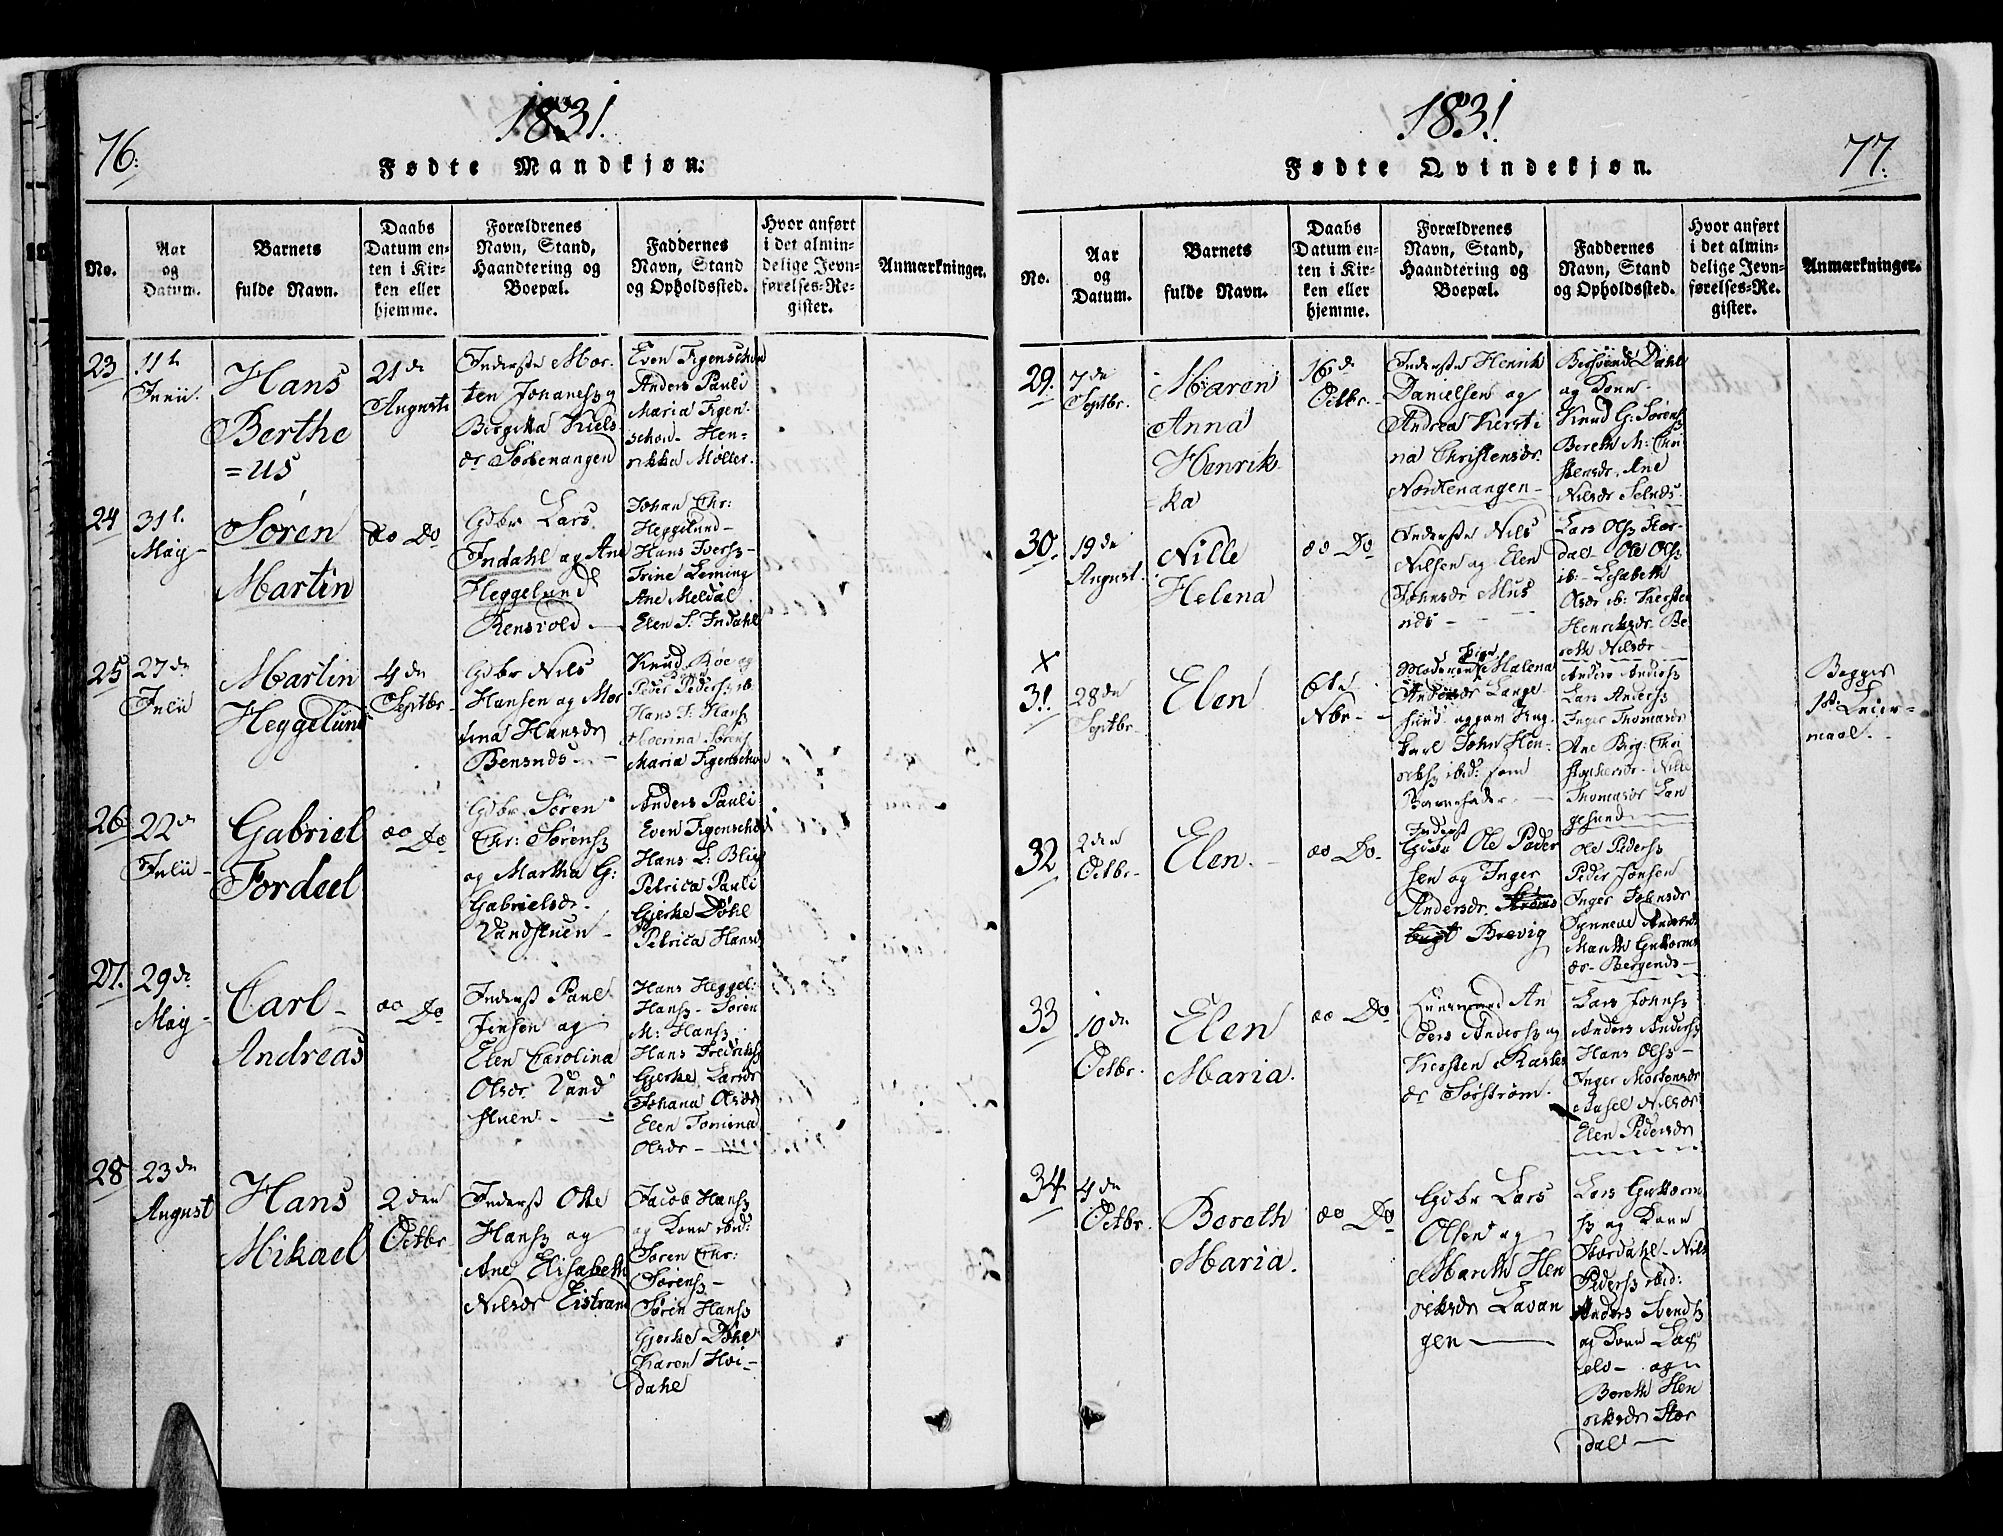 76.
1831.
Fødte Mandkjøn.
No.
Aar
og
Datum.
Barnets
fulde Navn.
Daabs
Datum en-
ten i Kir-
ken eller
hjemme.
Forældrenes
Navn, Stand,
Haandtering og
Boepæl.
Faddernes
Navn, Stand
og Opholdssted.
Hvor anført
i det almin-
delige Jevn-
førelses-Re-
gister.
Anmærkninger.
23
11te
Junii.
Hans
Berthe
=us
21de
Augusti
Inderste Mor-
ten Johanes og
Birgitta Niels-
dr Sørbenangen
Even Figenschou
Anders Pauli
Maria Figen-
schou- Hen-
rikka Møller.
24
31te
May-
Søren
Martin
do Do
Gdbr Lars
Indahl og Ane
Heggelund
Rensvold.
Johan Chr:
Heggelund-
Hans Ivers
Trine Leming
Ane Meldal
Elen S. Indahl
25
27de
Julii
Martin
Heggelund
4de
Septbr
Gdbr Nils
Hansen og Mor
tina Hansdr
Bensnds.
Knud Røe og
Peder Peders ib.
Hans J: Hans
Sørens
Maria Figenschou
26
22de
Julii-
Gabriel
Fordeel
do Do
Gdbr Søren
Chr: Sørens
og Martha G:
Gabrielsdr.
Vandstuen-
Anders Pauli
Even Figenschou
Hans L: Blix
Petrica Pauli
Gjerke Døhl
Petrica Hansd
27.
29de
May-
Carl-
Andreas
do Do
Inderst Paul
Jensen og
Elen Carolina
Olsdr Vand
stuen.
Hans Heggel:
Hans- Søren
M: Hans
Hans Fredriks
Gjerke Larsdr
Johana Olsdr
Elen Tomina
Olsdr-
28
23de
August
Hans
Mikael
2den
Octbr
Inderst Ole
Hans og
Ane Elisabeth
Nilsdr Eistrand
Jacob Hans
og Kone ibid:
Søren Chr:
Sørens-
Søren Hans
Gjerke Døhl
Karen Hvi-
dahl
1831
77.
Fødte Qvindekjøn.
No.
Aar
og
Datum.
Barnets
fulde Navn.
Daabs
Datum en-
ten i Kir-
ken eller
hjemme.
Forældrenes
Navn, Stand,
Haandtering og
Boepæl.
Faddernes
Navn, Stand
og Opholdssted.
Hvor anført
i det almin-
delige Jevn-
førelses-Re-
gister.
Anmærkninger.
29.
7de
Septbr.
Maren
Anna
Henrik-
ka
16de
Octbr.
Inderste Henrik
Danielsen og
Andrea Kersti
na Christensdr
Nordenangen-
Dahl
og Kone-
Knud G: Sørens
Bereth M: Chri
stensdr. Ane
Nilsdr Selnds.
30.
19de
August.
Nille
Helena
do Do
Inderste Nils
Nilsen og Elen
Johnsdr Mus
nds-
Lars Ols Stor-
dal- Ole Ols
ib:- Lisabeth
Olsdr ib: Kersten
Henriksdr. Be
reth Nilsdr-
31.
28de
Septbr.
Elen
6te
Nbr-
Pige
Moderen Malena
Andersdr Lange
sund, og Ung-
karl John Hen-
riks ibid: som
Barnefader.
Anders Anders
Lars Anders
Inger Thomasdr
Ane Birg: Chri
stophersdr- Nille
Thomasdr Lan
gesund
Begges
1ste Leier-
maal.
32
2den
Octbr-
Elen.
do Do.
Inderst
Gdbr Ole Peder
sen og Inger
Andersdr. Strøms
bugt Brevig
Ole Peders
Peder Jonsen
Inger Johnsdr
Synneve Andersdr
Marith Guttorms
dr- Bergends-
33
10de
Octbr.
Elen
Maria.
do Do
An
ders Anders og
Kersten Karles
dr Sørstrøm.
Lars Johns
Anders Anders
Hans Ols-
Inger Mortensdr
Nilsdr
Elen Pedersdr
34
4de
Octbr.
Bereth
Maria.
do Do
Gdbr Lars
Olsen og
Mareth Hen
riksdr Lavan
gen
Lars Guttorm
s og Kone
Stordahl- Nils
Peders ibid:
Anders Svends
og Kone Lax
elv- og
Bereth Hen
riksdr Stor
dal-